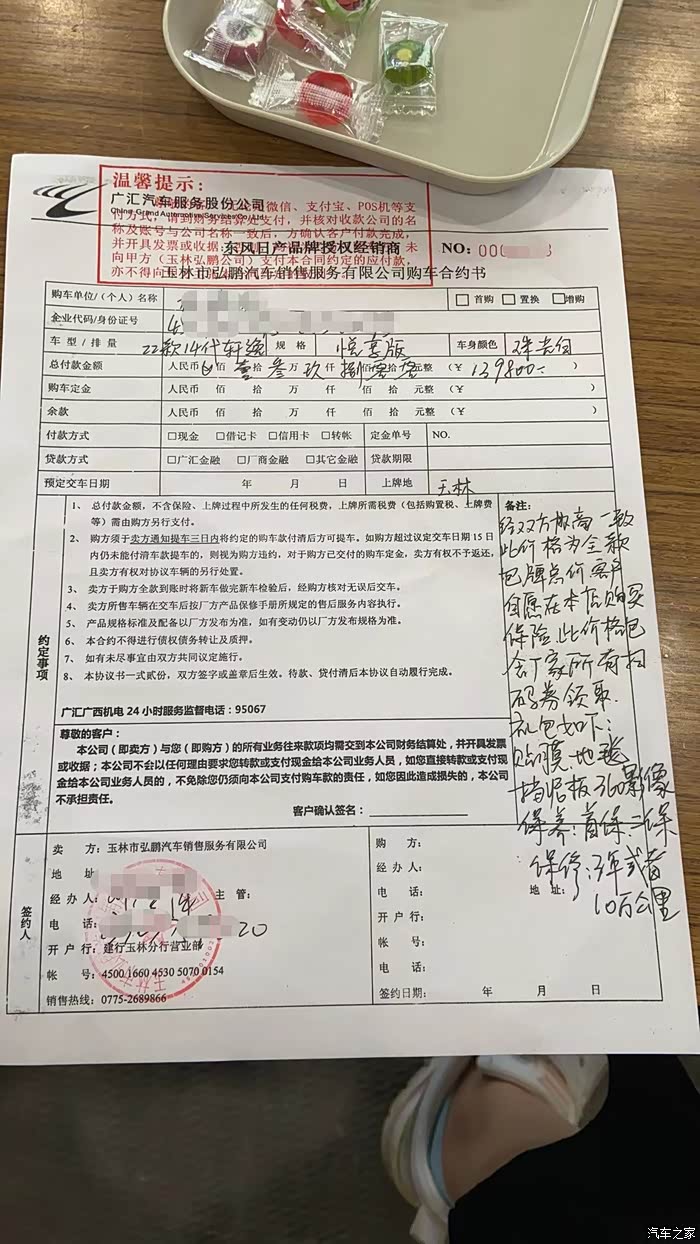 温馨提示：
广汇汽车服务股份公司
China Grand Automotive Services Co.,Ltd
微信、支付宝、POS机等支
付方式，请到财务结算处支付，并核对收款公司的名
称及账号与公司名称一致后，方确认客户付款完成，
并开具发票或收据；
未
向甲方（玉林弘鹏公司）支付本合同约定的应付款，
亦不得向
东风日产品牌授权经销商
NO：00 3
玉林市弘鹏汽车销售服务有限公司购车合约书
购车单位/（个人）名称 □首购 □置换 □增购
企业代码/身份证号 4
车 型 / 排 量 22款14代轩逸 规 格 悦享版 车身颜色 珠光白
总付款金额 人民币 佰 壹拾 叁万 玖仟 捌佰 零拾 零元整 （￥ 139800 ）
购车定金 人民币 佰 拾 万 仟 佰 拾 元整 （￥ ）
余款 人民币 佰 拾 万 仟 佰 拾 元整 （￥ ）
付款方式 □现金 □借记卡 □信用卡 □转帐 定金单号 NO.
贷款方式 □广汇金融 □厂商金融 □其它金融 贷款期限
预定交车日期 年 月 日 上牌地 玉林
约定事项
1、 总付款金额，不含保险、上牌过程中所发生的任何税费，上牌所需税费（包括购置税、上牌费
等）需由购方另行支付。
2、 购方须于卖方通知提车三日内将约定的购车款付清后方可提车。如购方超过议定交车日期 15 日
内仍未能付清车款提车的，则视为购方违约，对于购方已交付的购车定金，卖方有权不予返还，
且卖方有权对协议车辆的另行处置。
3、 卖方于购方全款到账时将新车做完新车检验后，经购方核对无误后交车。
4、 卖方所售车辆在交车后按厂方产品保修手册所规定的售后服务内容执行。
5、 产品规格标准及配备以厂方发布为准，如有变动仍以厂方发布规格为准。
6、 本合约不得进行债权债务转让及质押。
7、 如有未尽事宜由双方共同议定施行。
8、 本协议书一式贰份，双方签字或盖章后生效。待款、贷付清后本协议自动履行完成。
广汇广西机电 24 小时服务监督电话：95067
尊敬的客户：
本公司（即卖方）与您（即购方）的所有业务往来款项均需交到本公司财务结算处，并开具发票
或收据；本公司不会以任何理由要求您转款或支付现金给本公司业务人员，如您直接转款或支付现
金给本公司业务人员的，不免除您仍须向本公司支付购车款的责任，如您因此造成损失的，本公司
不承担责任。
客户确认签名：
备注：
经双方协商一致
此价格为全款
包牌总价 客户
自愿在本店购买
保险 此价格包
含厂家所有扫
码券领取.
礼包如下：
贴膜 地毯
挡泥板 360影像
保养：首保 二保
保修：3年或者
10万公里
签约人
卖 方：玉林市弘鹏汽车销售服务有限公司
地 址
经 办 人： 主 管：
电 话： 20
开 户 行：建行玉林分行营业部
帐 号：4500 1660 4530 5070 0154
销售热线：0775-2689866
购 方：
经 办 人：
电 话： 地 址：
开 户 行：
帐 号：
电 话：
签约日期： 年 月 日
汽车之家